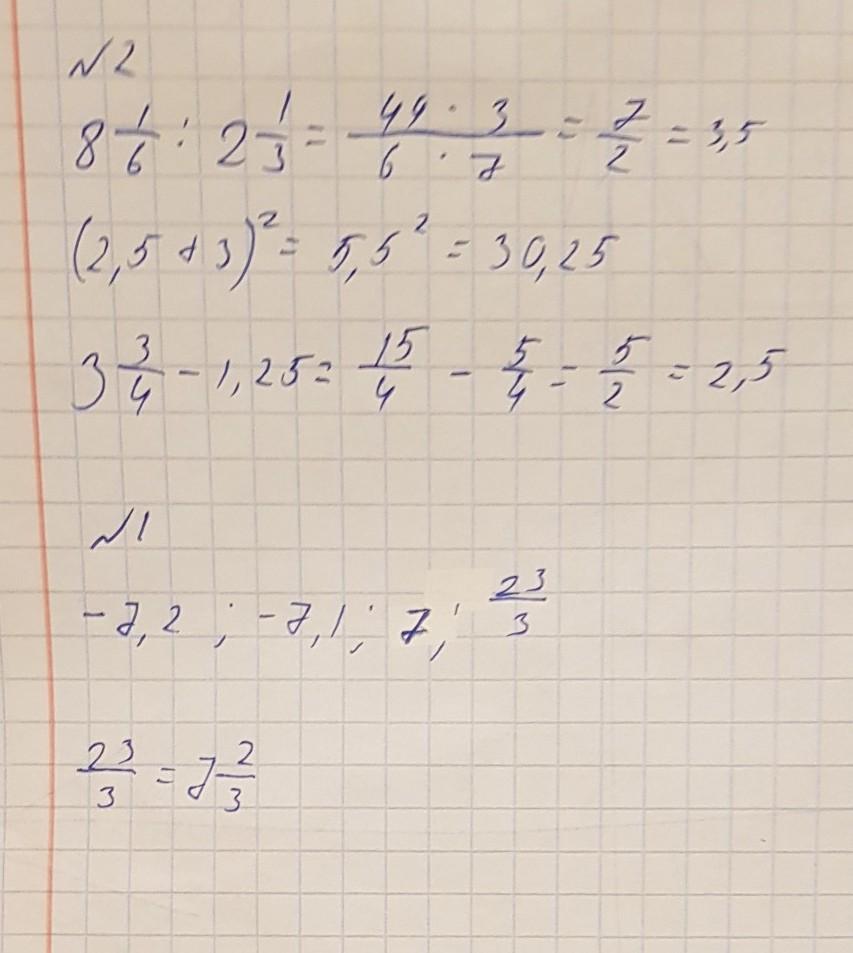 №2
8 1/6 : 2 1/3 = 49 · 3 / 6 · 7 = 7/2 = 3,5
(2,5 + 3)² = 5,5² = 30,25
3 3/4 - 1,25 = 15/4 - 5/4 = 5/2 = 2,5
№1
-7,2 ; -7,1 ; 7 ; 23/3
23/3 = 7 2/3